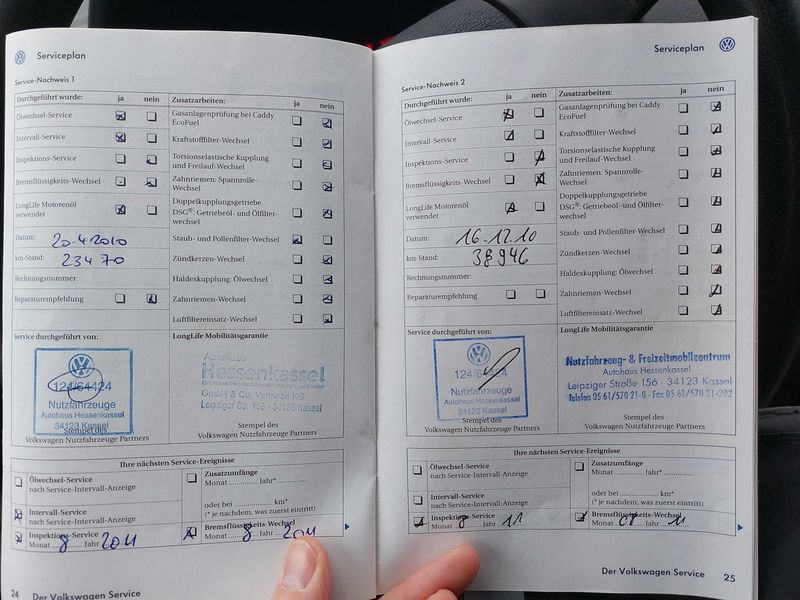 Serviceplan
Service-Nachweis 1
Durchgeführt wurde: ja nein Zusatzarbeiten: ja nein
Ölwechsel-Service
Gasanlagenprüfung bei Caddy
EcoFuel
Intervall-Service
Kraftstofffilter-Wechsel
Inspektions-Service
Torsionselastische Kupplung
und Freilauf-Wechsel
Bremsflüssigkeits-Wechsel
Zahnriemen: Spannrolle-
Wechsel
LongLife Motorenöl
verwendet
Doppelkupplungsgetriebe
DSG®: Getriebeöl- und Ölfilter-
wechsel
Datum: 20.4.2010
Staub- und Pollenfilter-Wechsel
km-Stand: 23470
Zündkerzen-Wechsel
Rechnungsnummer:
Haldexkupplung: Ölwechsel
Reparaturempfehlung
Zahnriemen-Wechsel
Luftfiltereinsatz-Wechsel
Service durchgeführt von:
LongLife Mobilitätsgarantie
124/64424
Nutzfahrzeuge
Autohaus Hessenkassel
34123 Kassel
Stempel des
Volkswagen Nutzfahrzeuge Partners
Autohaus
Hessenkassel
GmbH & Co. Vertriebs KG
Leipziger Str. 156 · 34123 Kassel
Stempel des
Volkswagen Nutzfahrzeuge Partners
Ihre nächsten Service-Ereignisse
Ölwechsel-Service
nach Service-Intervall-Anzeige
Zusatzumfänge
Monat Jahr*
oder bei km*
(* je nachdem, was zuerst eintritt)
Intervall-Service
nach Service-Intervall-Anzeige
Inspektions-Service
Monat 8 Jahr 2011
Bremsflüssigkeits-Wechsel
Monat 8 Jahr 2011
24 Der Volkswagen Service
Serviceplan
Service-Nachweis 2
Durchgeführt wurde: ja nein Zusatzarbeiten: ja nein
Ölwechsel-Service
Gasanlagenprüfung bei Caddy
EcoFuel
Intervall-Service
Kraftstofffilter-Wechsel
Inspektions-Service
Torsionselastische Kupplung
und Freilauf-Wechsel
Bremsflüssigkeits-Wechsel
Zahnriemen: Spannrolle-
Wechsel
LongLife Motorenöl
verwendet
Doppelkupplungsgetriebe
DSG®: Getriebeöl- und Ölfilter-
wechsel
Datum: 16.12.10
Staub- und Pollenfilter-Wechsel
km-Stand: 38946
Zündkerzen-Wechsel
Rechnungsnummer:
Haldexkupplung: Ölwechsel
Reparaturempfehlung
Zahnriemen-Wechsel
Luftfiltereinsatz-Wechsel
Service durchgeführt von:
LongLife Mobilitätsgarantie
124/64424
Nutzfahrzeuge
Autohaus Hessenkassel
34123 Kassel
Stempel des
Volkswagen Nutzfahrzeuge Partners
Nutzfahrzeug- & Freizeitmobilzentrum
Autohaus Hessenkassel
Leipziger Straße 156 · 34123 Kassel
Telefon 05 61/570 21-0 · Fax 05 61/570 21-202
Stempel des
Volkswagen Nutzfahrzeuge Partners
Ihre nächsten Service-Ereignisse
Ölwechsel-Service
nach Service-Intervall-Anzeige
Zusatzumfänge
Monat Jahr*
oder bei km*
(* je nachdem, was zuerst eintritt)
Intervall-Service
nach Service-Intervall-Anzeige
Inspektions-Service
Monat 8 Jahr 11
Bremsflüssigkeits-Wechsel
Monat 08 Jahr 11
Der Volkswagen Service 25